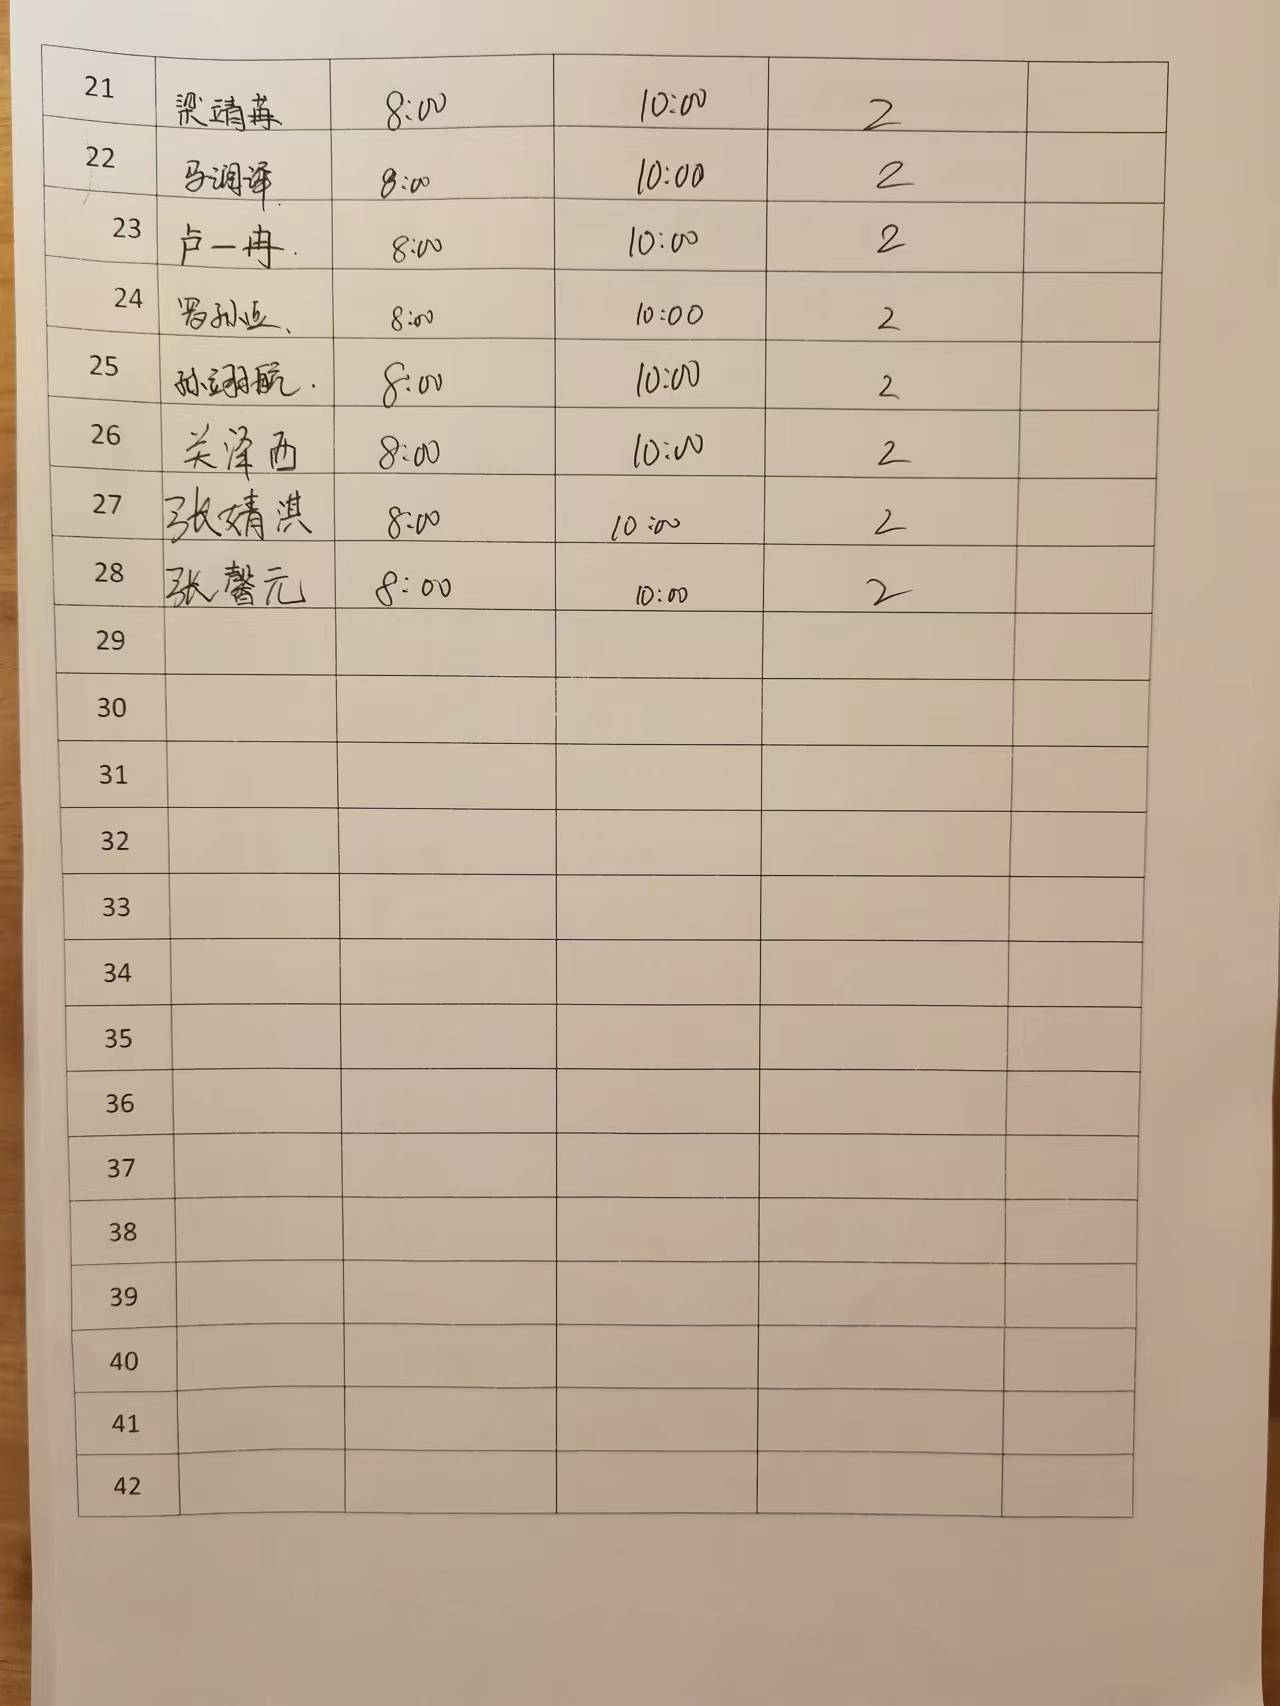 21 梁靖苒 8:00 10:00 2
22 马润泽 8:00 10:00 2
23 卢一冉. 8:00 10:00 2
24 8:00 10:00 2
25 孙翊航. 8:00 10:00 2
26 关泽西 8:00 10:00 2
27 张婧淇 8:00 10:00 2
28 张馨元 8:00 10:00 2
29
30
31
32
33
34
35
36
37
38
39
40
41
42